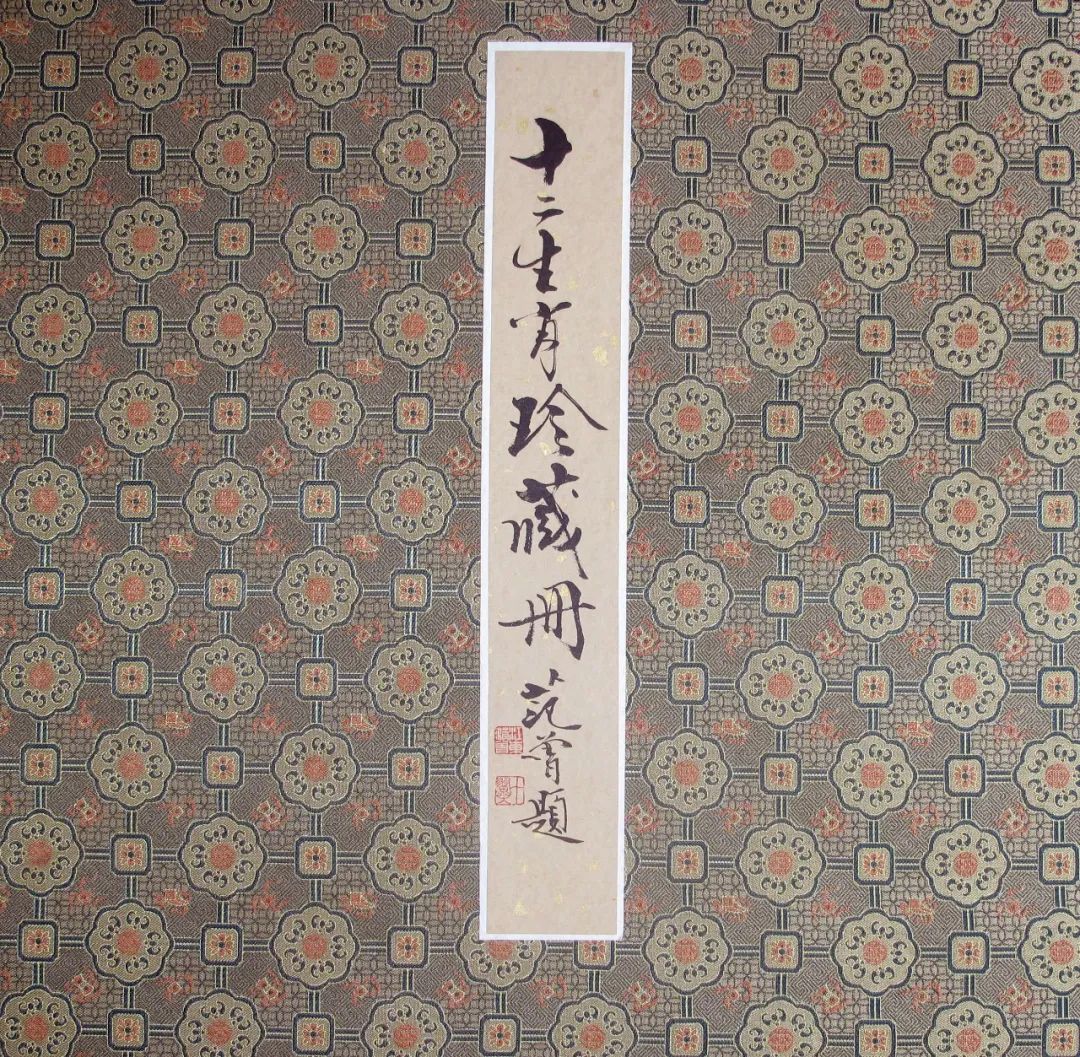 十二生肖珍藏册 范曾题